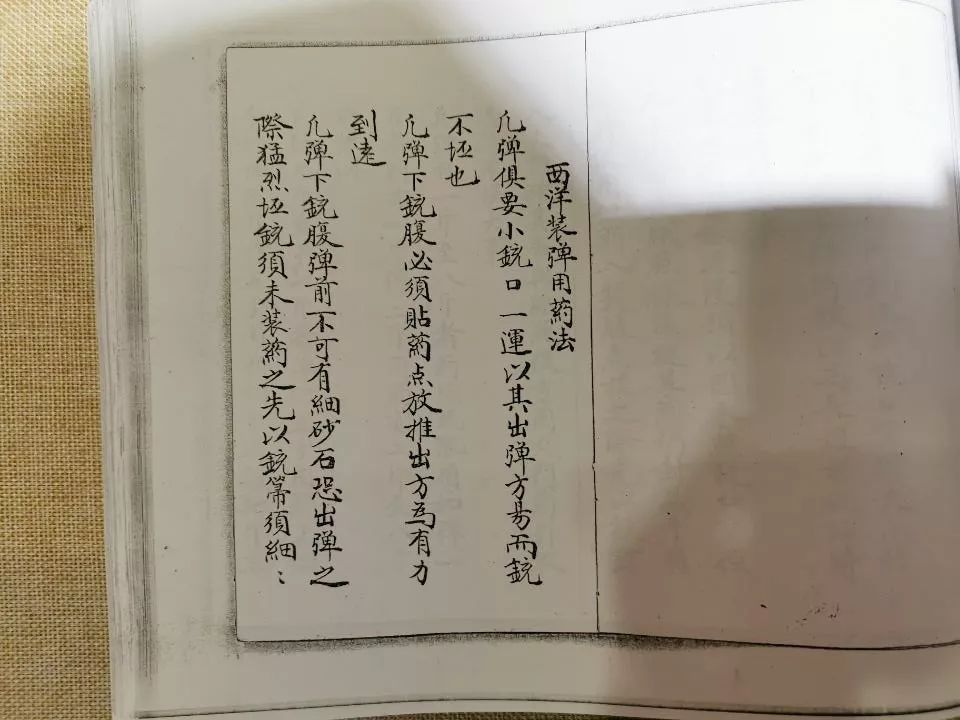 西洋装弹用葯法
凢弹俱要小銃口一運以其出弹方易而銃
不坯也
凢弹下銃腹必須貼葯点放推出方為有力
到遠
凢弹下銃腹弹前不可有細砂石恐出弹之
際猛烈坯銃須未装葯之先以銃箒須細〻